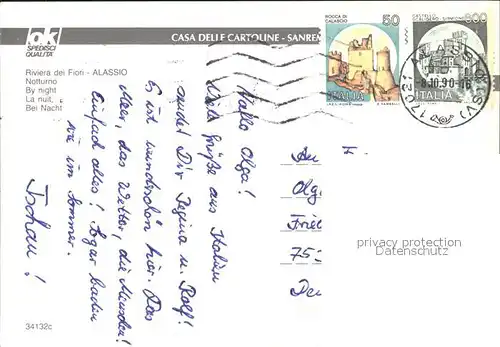 ok
SPEDISCI
QUALITÀ
CASA DELLE CARTOLINE - SANREM
Riviera dei Fiori - ALASSIO
Notturno
By night
La nuit,
Bei Nacht
ROCCA DI
CALASCIO
50
ITALIA
ITALIA
17021 ALASSIO
-8.10.90-16
Hallo Olga!
Viele Grüße aus Italien
sendet Dir Regina u. Rolf!
Es ist wunderschön hier. Das
Meer, das Wetter, die Menschen!
Einfach alles! Sogar baden
wie im Sommer.
Tschau!
An
Olg
Frie
75
De
privacy protection
Datenschutz
34132c